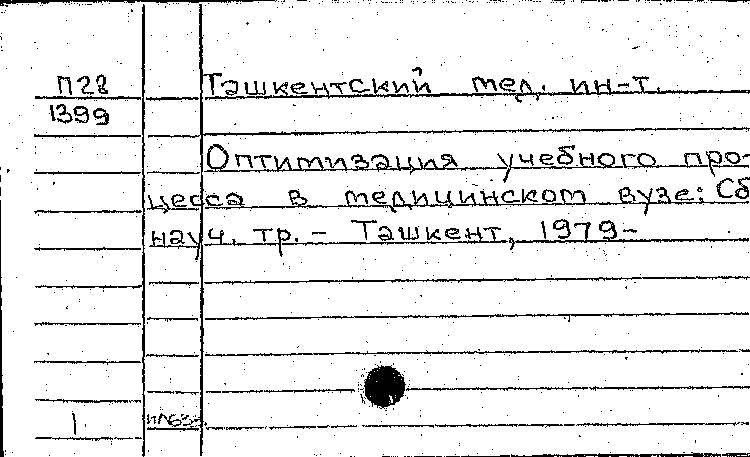 П28 Ташкентский мед. ин-т.
1399
Оптимизация учебного про-
цесса в медицинском вузе: Сб
науч. тр. – Ташкент, 1979–
1